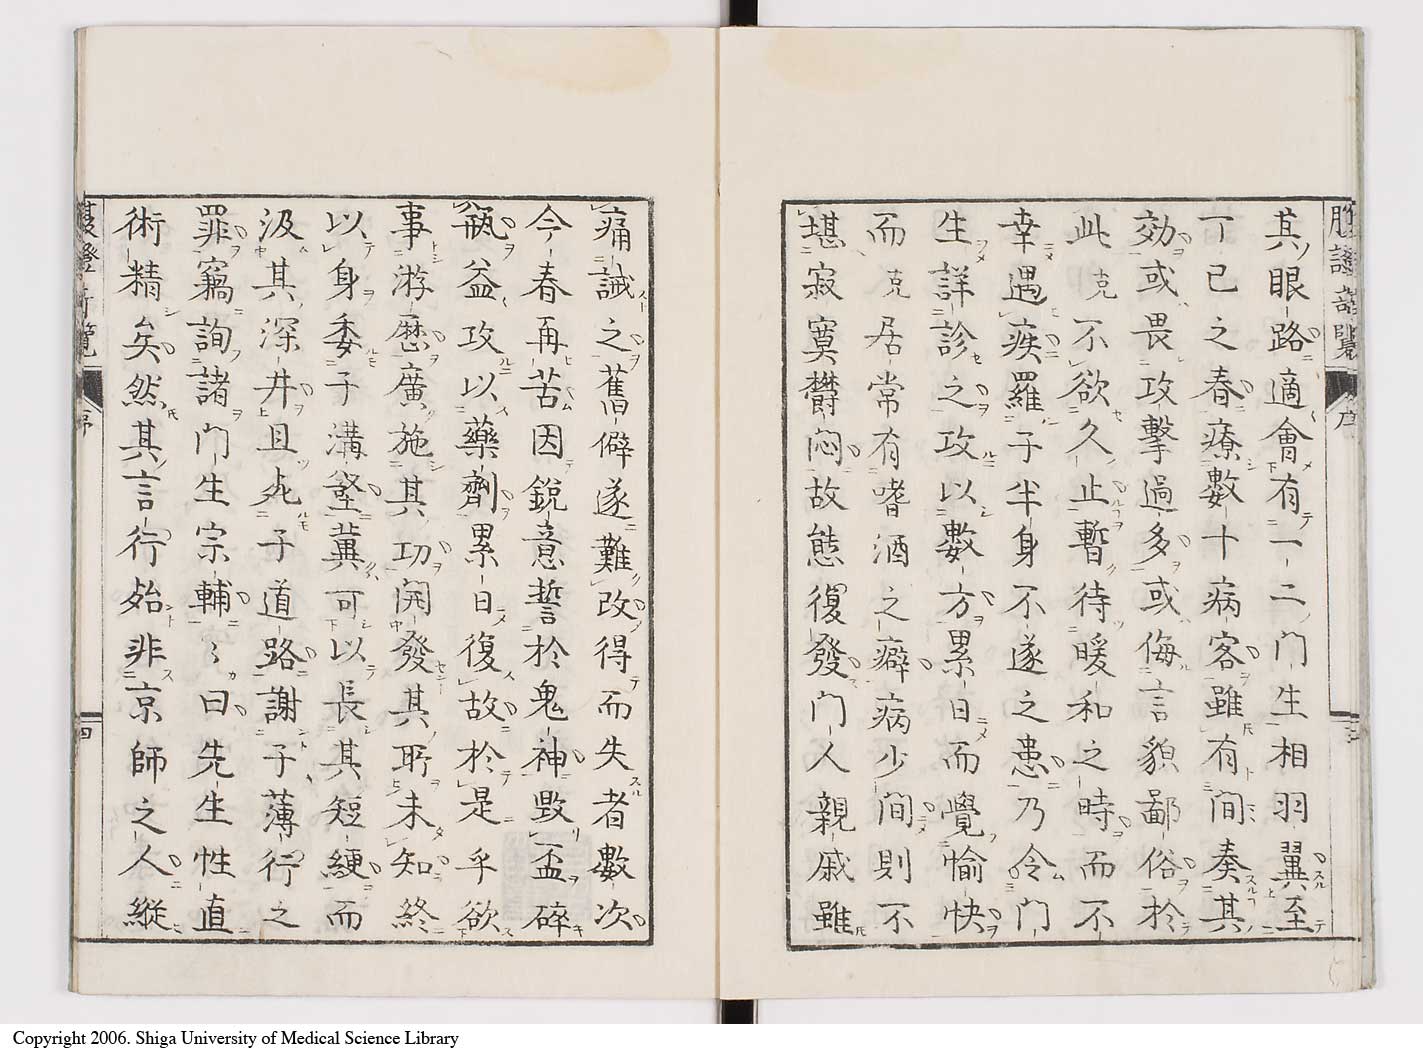 其眼路適會有一二門生相羽翼至
丁巳之春療數十病客雖有間奏其
効或畏攻擊過多或侮言貌鄙俗於
此克不欲久止暫待暖和之時而不
幸遇疾羅子半身不遂之患乃令門
生詳診之攻以數方累日而覺愉快
而克居常有嗜酒之癖病少間則不
堪寂寞欝悶故態復發門人親戚雖
痛誡之舊僻遂難改得而失者數次
今春再苦因銳意誓於鬼神毀盃碎
瓶益攻以藥劑累日復故於是乎欲
事游歷廣施其功開發其所未知終
以身委子溝壑冀可以長其短綆而
汲其深井且死子道路謝子薄行之
罪竊詢諸門生宗輔〻曰先生性直
術精矣然其言行殆非京師之人縱
序
四
Copyright 2006. Shiga University of Medical Science Library